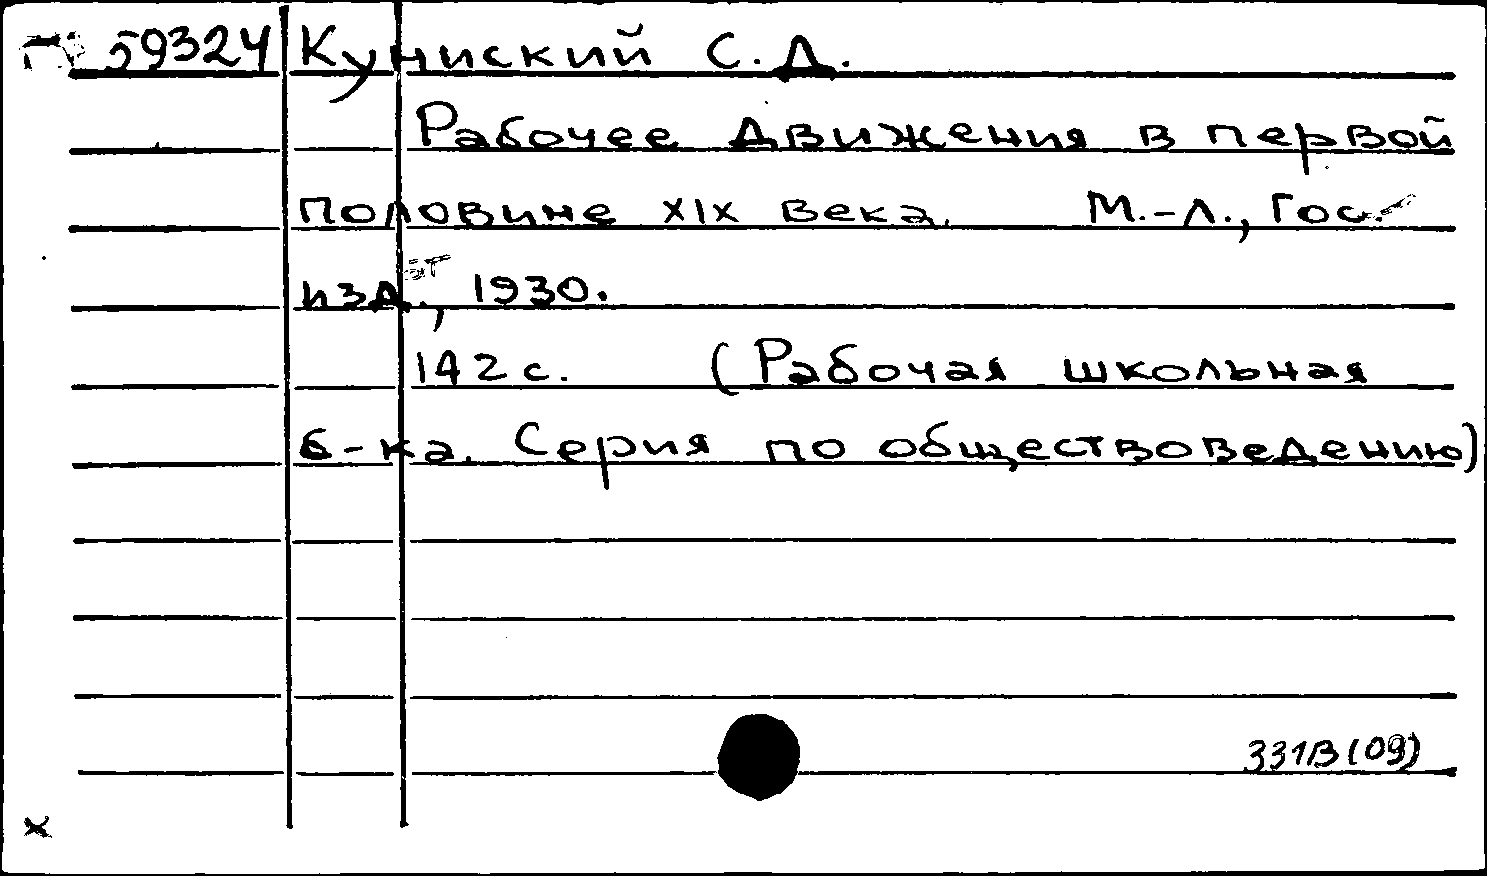 59324 Куниский С. Д.
Рабочее движения в первой
половине XIX века. М.-Л., Гос.
изд., 1930.
142 с. (Рабочая школьная
б-ка. Серия по обществоведению)
331В(09)
х